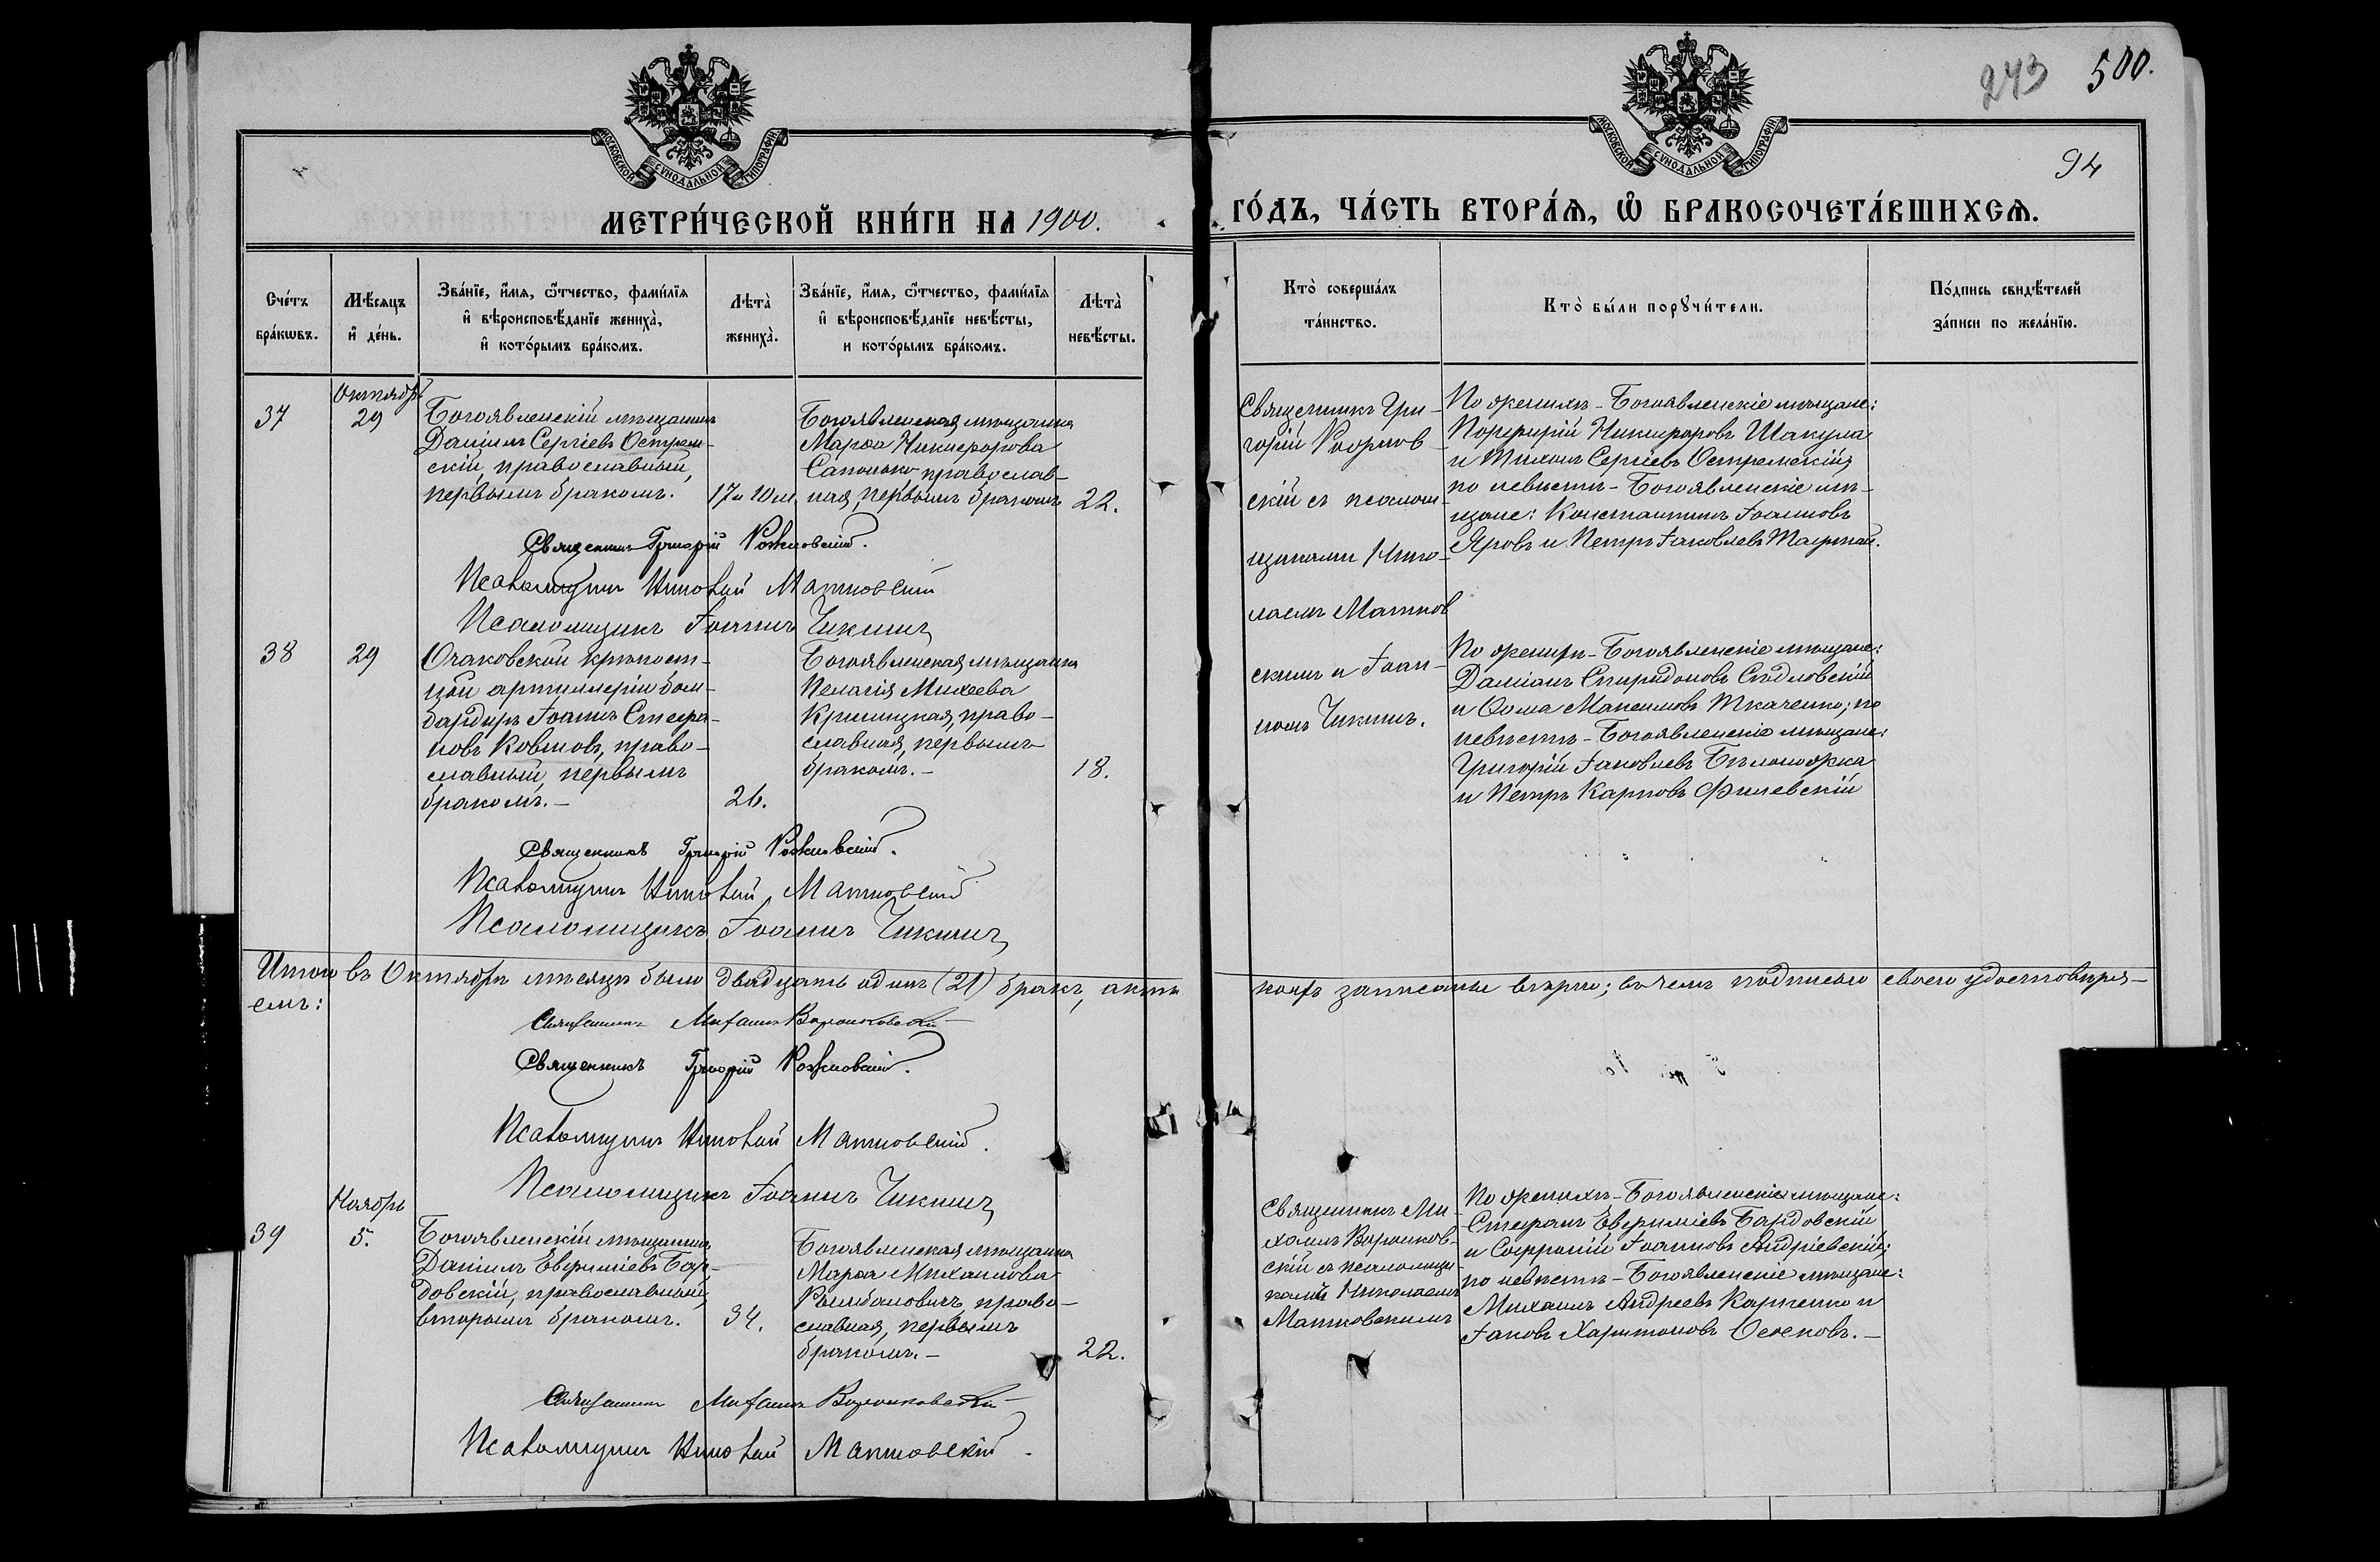 243 500.
94
МОСКОВСКОЙ СѴНОДАЛЬНОЙ ТИПОГРАФІИ
МОСКОВСКОЙ СѴНОДАЛЬНОЙ ТИПОГРАФІИ
МЕТРИ́ЧЕСКОЙ КНИ́ГИ НА 1900.
ГО́ДЪ, ЧА́СТЬ ВТОРА́Я, Ѽ БРАКОСОЧЕТА́ВШИХСЯ.
Сче́тъ бра́кѡвъ.
Мѣ́сяцъ и҆ де́нь.
Зва́нїе, и҆́мя, ѻ҆́тчество, фами́лїя
и҆ вѣроисповѣ́данїе жениха̀,
и҆ кото́рымъ бра́комъ.
Лѣта̀ жениха̀.
Зва́нїе, и҆́мя, ѻ҆́тчество, фами́лїя
и҆ вѣроисповѣ́данїе невѣ́сты,
и кото́рымъ бра́комъ.
Лѣта̀ невѣ́сты.
Кто̀ соверша́лъ
та́инство.
Кто̀ бы́ли порꙋчи́тели.
По́дпись свидѣ́телей
за́писи по жела́нїю.
Октябрь
37
29
Богоявленскій мѣщанинъ
Даніилъ Сергіевъ Острем-
скій, православный,
первымъ бракомъ.
17 и 10 м.
Богоявленская мѣщанка
Марѳа Никифорова
Сапонько православ-
ная, первымъ бракомъ
22.
Священникъ Гри-
горій Рожнов-
скій съ псалом-
щиками Нико-
лаемъ Матков
скимъ и Іоан-
номъ Чикинъ.
По женихѣ - Богоявленскіе мѣщане:
Порфирій Никифоровъ Шакула
и Тихонъ Сергіевъ Остремскій;
по невѣстѣ - Богоявленскіе мѣ-
щане: Константинъ Іоанновъ
Яровъ и Петръ Іаковлевъ
Священникъ Григорій Рожновскій.
Псаломщикъ Николай Матковскій
Псаломщикъ Іоаннъ Чикинъ
38
29
Очаковской крѣпост-
ной артиллеріи бом-
бардиръ Іоаннъ Стефа-
новъ Ковтовъ, право-
славный, первымъ
бракомъ. -
26.
Богоявленская мѣщанка
Пелагія Михеева
Криницкая, право-
славная, первымъ
бракомъ. -
18.
По женихѣ - Богоявленскіе мѣщане:
Даміанъ Спиридоновъ Сѣдловскій
и Ѳома Максимовъ Ткаченко; по
невѣстѣ - Богоявленскіе мѣщане:
Григорій Іаковлевъ Бѣлоножка
и Петръ Карповъ Филевскій
Священникъ Григорій Рожновскій.
Псаломщикъ Николай Матковскій
Псаломщикъ Іоаннъ Чикинъ
Итого въ Октябрѣ мѣсяцѣ было двадцать одинъ (21) бракъ, акты
коихъ записаны вѣрно; въ чемъ подписью своею удостовѣря-
емъ:
Священникъ Михаилъ Воронковскій
Священникъ Григорій Рожновскій.
Псаломщикъ Николай Матковскій.
Псаломщикъ Іоаннъ Чикинъ
Ноябрь
39
5.
Богоявленскій мѣщанинъ
Даніилъ Евфиміевъ Бар-
довскій, православный,
вторымъ бракомъ.
34.
Богоявленская мѣщанка
Марѳа Михаилова
православная, первымъ
бракомъ. -
22.
Священникъ Ми-
хаилъ Воронков-
скій съ псаломщи-
комъ Николаемъ
Матковскимъ
По женихѣ - Богоявленскіе мѣщане:
Стефанъ Евфиміевъ Бардовскій
и Софроній Іоанновъ Андріевскій;
по невѣстѣ - Богоявленскіе мѣщане:
Михаилъ Андреевъ Карпенко и
Іаковъ Харитоновъ
Священникъ Михаилъ Воронковскій
Псаломщикъ Николай Матковскій.